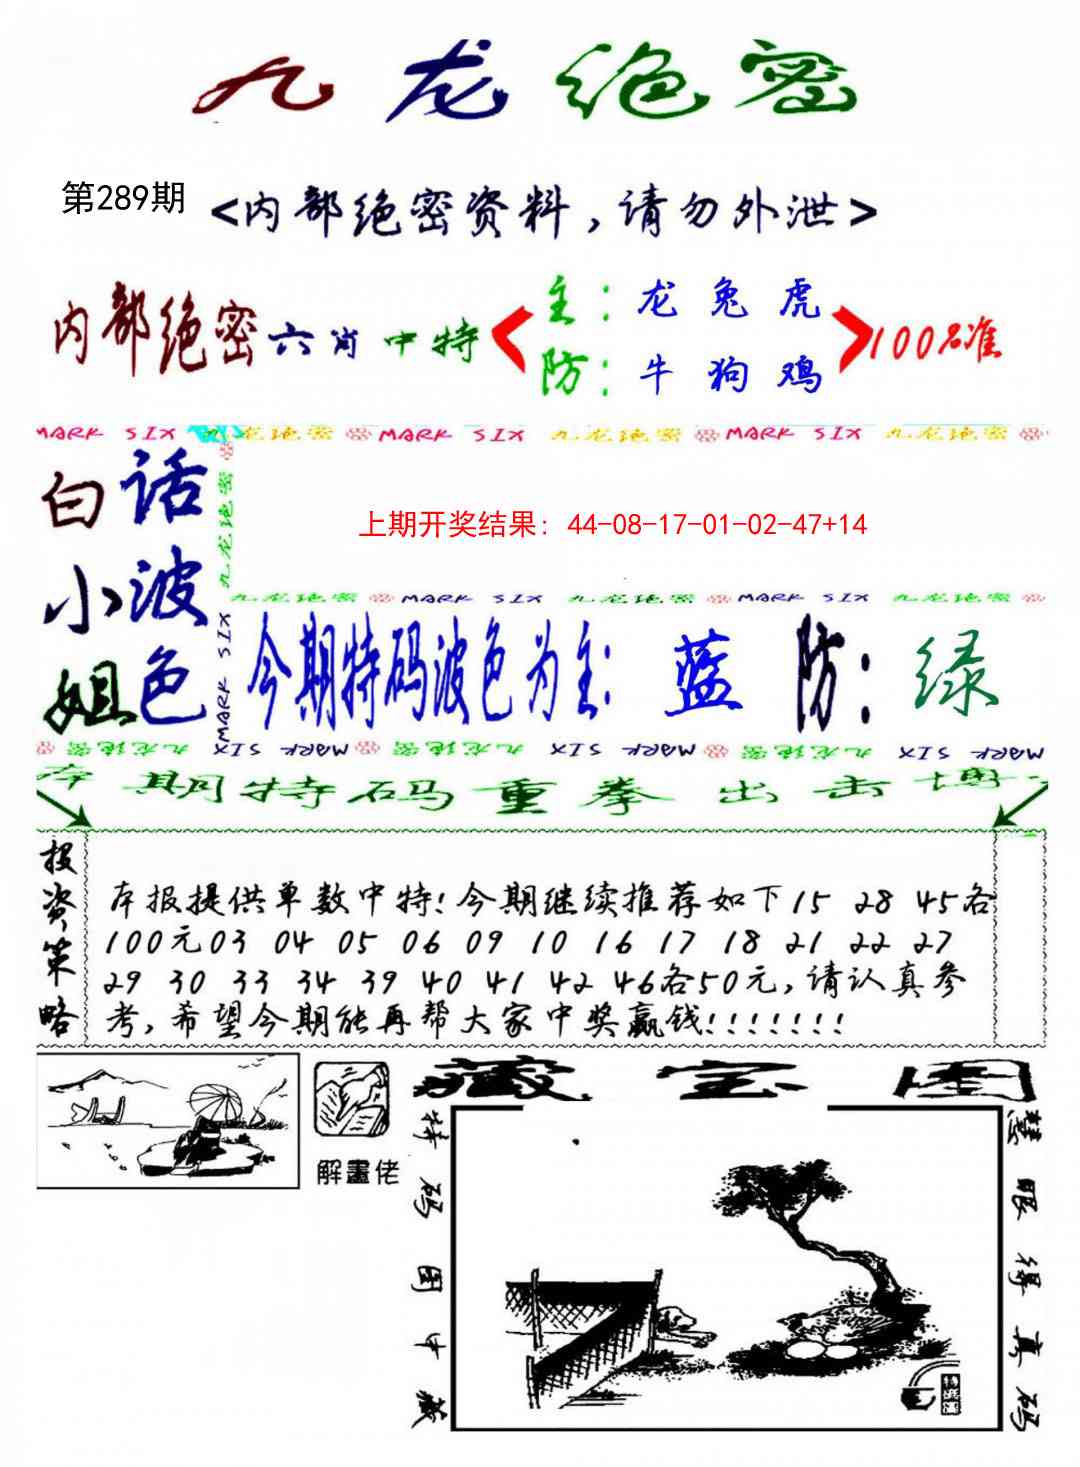 九龙绝密
第289期
<内部绝密资料,请勿外泄>
内部绝密六肖中特
主：龙兔虎
防：牛狗鸡
100%准
MARK SIX 九龙绝密 MARK SIX 九龙绝密 MARK SIX 九龙绝密
白小姐
话波色
九龙绝密
MARK SIX
上期开奖结果：44-08-17-01-02-47+14
九龙绝密 MARK SIX 九龙绝密 MARK SIX 九龙绝密
今期特码波色为主:蓝 防：绿
九龙绝密 MARK SIX 九龙绝密 MARK SIX 九龙绝密 MARK SIX
本期特码重拳出击博
投资策略
本报提供单数中特!今期继续推荐如下15 28 45各
100元03 04 05 06 09 10 16 17 18 21 22 27
29 30 33 34 39 40 41 42 46各50元,请认真参
考,希望今期能再帮大家中奖赢钱!!!!!!!
解畫佬
藏宝图
特码图中藏
慧眼得真码